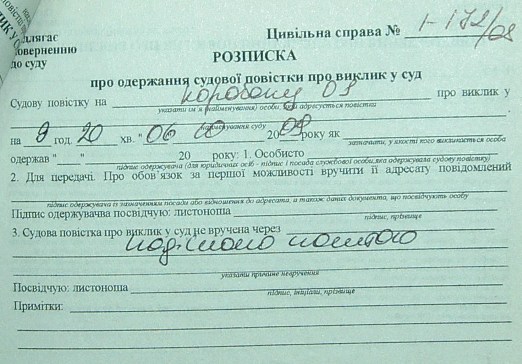 длягає
поверненню
до суду
Цивільна справа № 1-172/08
РОЗПИСКА
про одержання судової повістки про виклик у суд
Судову повістку на про виклик у
указати ім'я (найменування) особи, якій адресується повістка
найменування суду
на 9 год. 20 хв. "06 20 09 року як
зазначити, у якості кого викликається особа
одержав "__" ____ 20 ___ року: 1. Особисто
підпис одержувача (для юридичних осіб - підпис і посада службової особи, яка одержувала судову повістку)
2. Для передачі. Про обов'язок за першої можливості вручити її адресату повідомлений
підпис одержувача із зазначенням посади або відношення до адресата, а також даних документа, що посвідчують особу
Підпис одержувачва посвідчую: листоноша
підпис, прізвище
3. Судова повістка про виклик у суд не вручена через
надіслано поштою
указати причине невручення
Посвідчую: листоноша
підпис, ініціали, прізвище
Примітки: